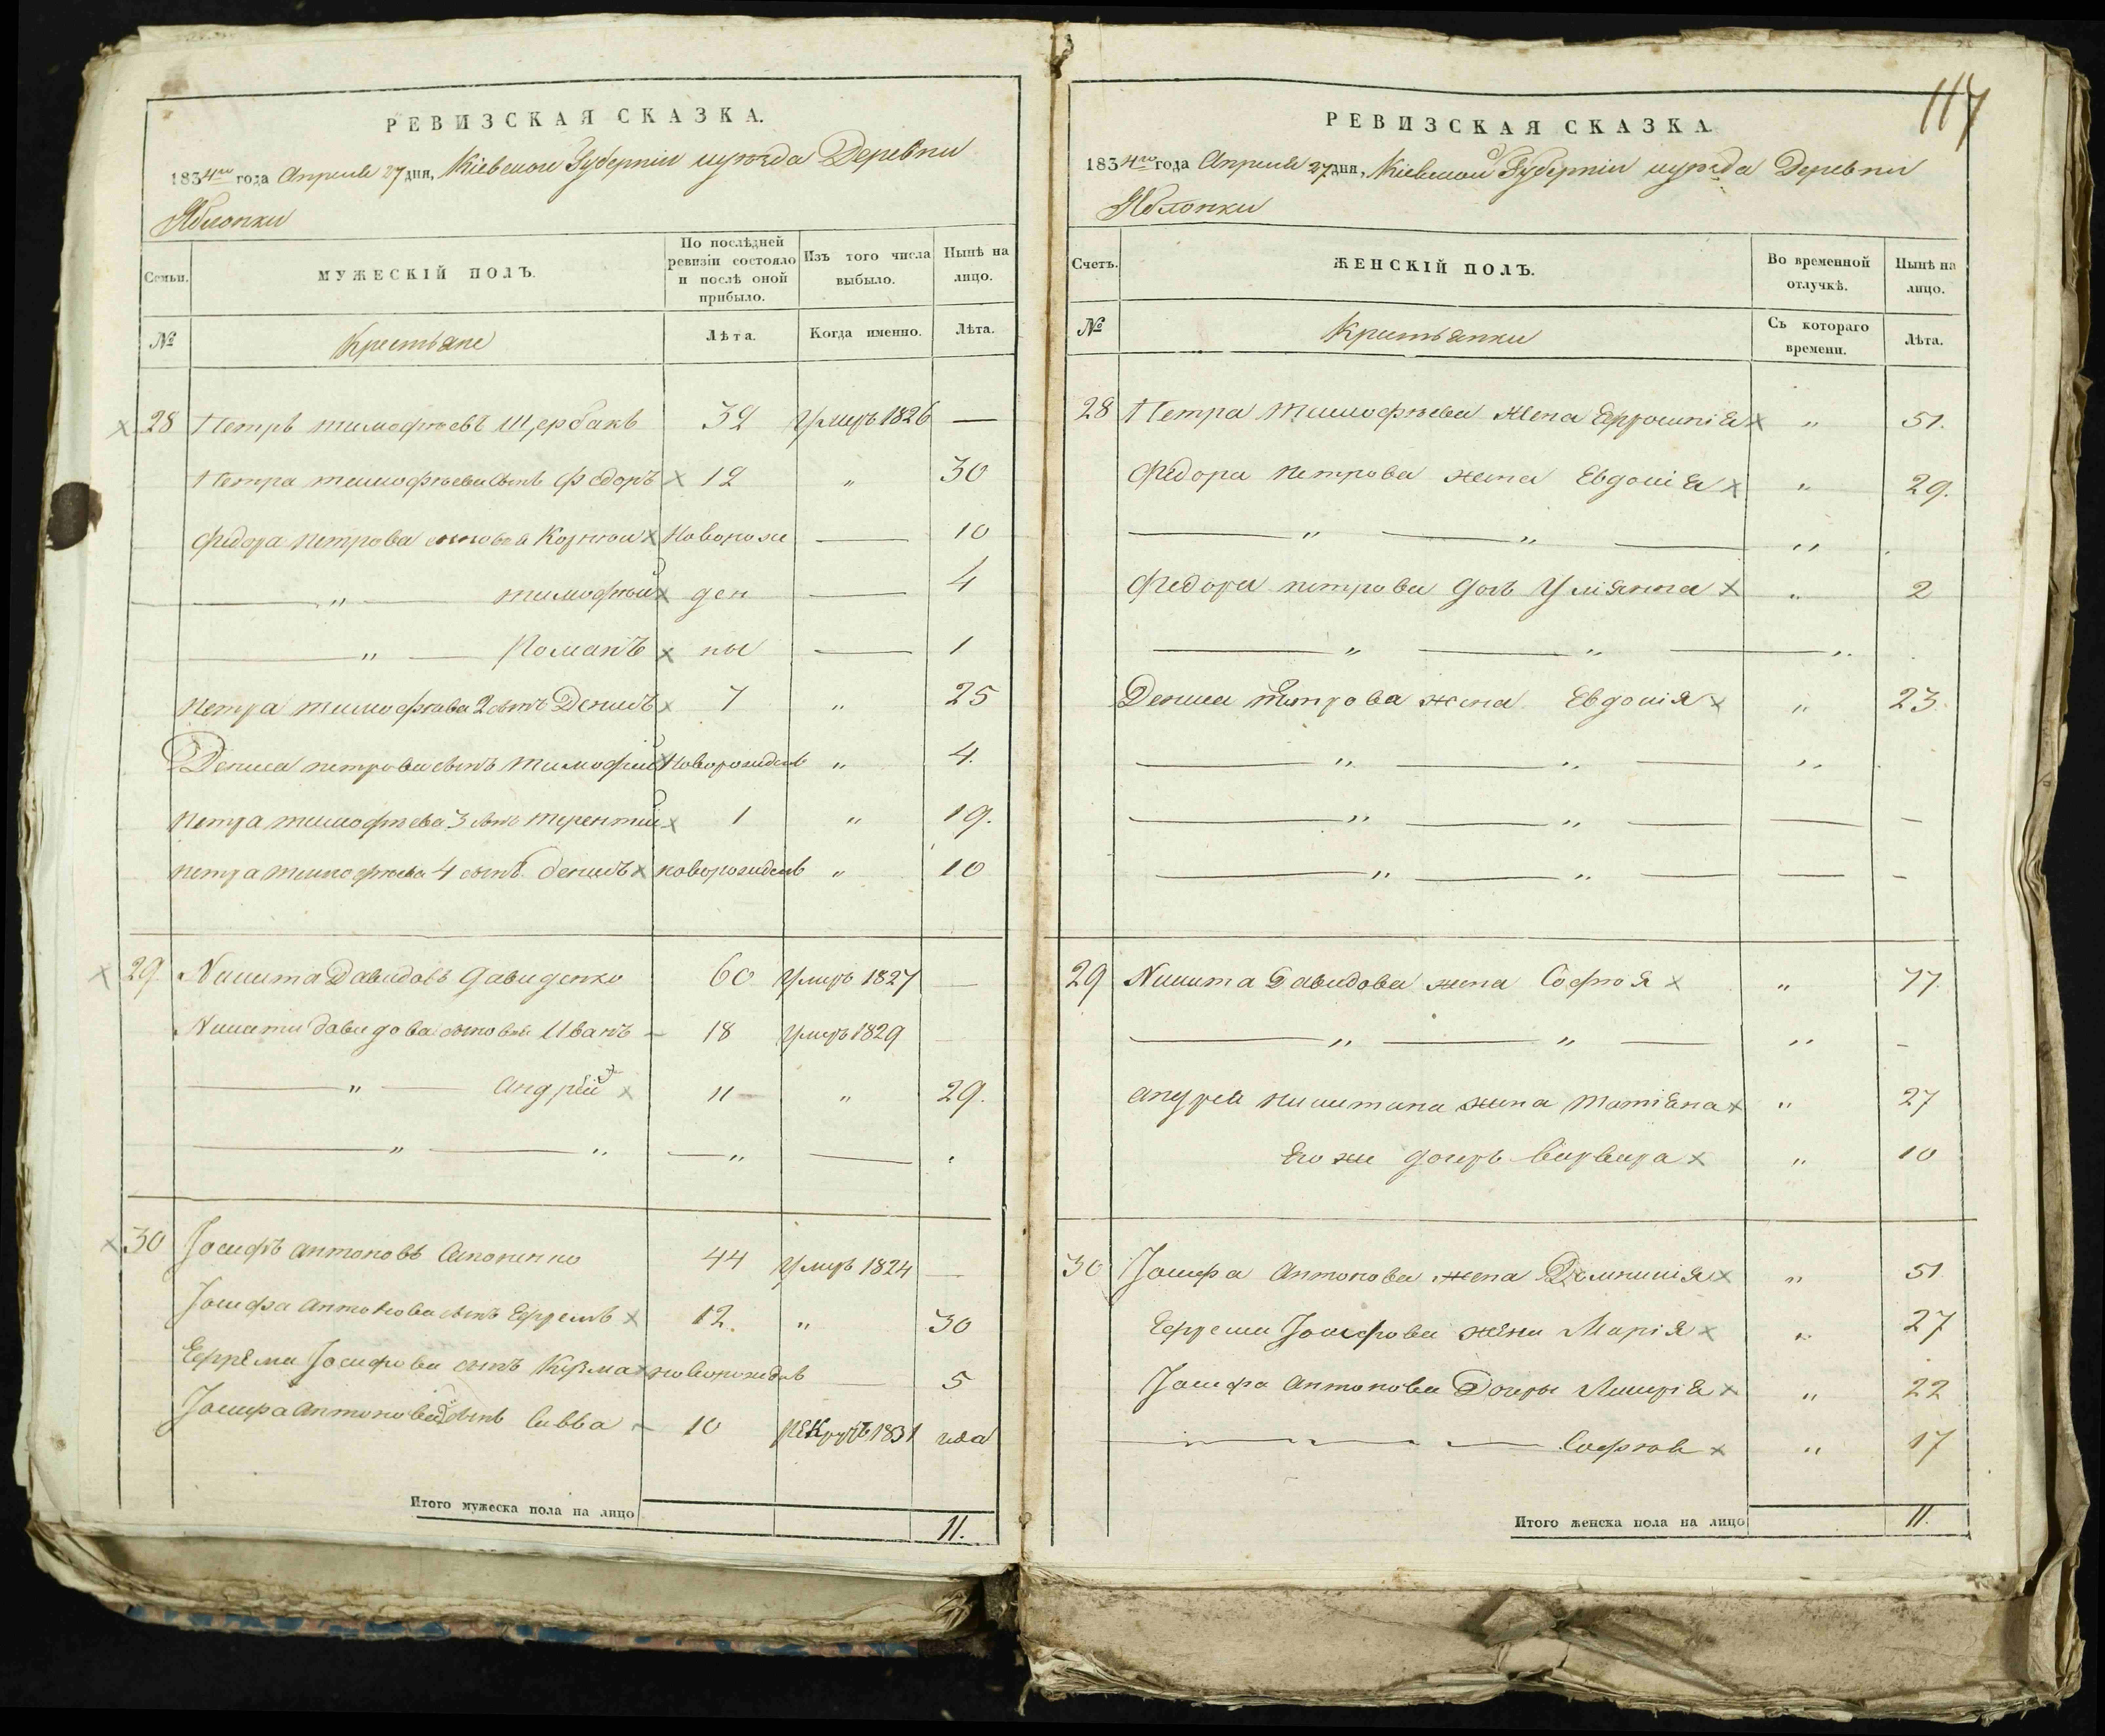 117
РЕВИЗСКАЯ СКАЗКА.
1834го года Апреля 27 дня, Кіевской Губерніи и уѣзда Деревни
Яблонки
Семьи.
МУЖЕСКІЙ ПОЛЪ.
По послѣдней ревизіи состояло и послѣ оной прибыло.
Изъ того числа выбыло.
Нынѣ на лицо.
№
Крестьяне
Лѣта.
Когда именно.
Лѣта.
28 Петръ тимофѣевъ Щербакъ 32 Умеръ 1826 —
Петра тимофѣева сынъ федоръ 12 „ 30
федора петрова сыновья Корнѣй новорож — 10
„ тимофѣй ден — 4
„ Романъ ны — 1
петра тимофѣева 2 сынъ Денисъ 7 „ 25
Дениса петрова сынъ тимофей новорожденъ „ 4.
петра тимофѣева 3 сынъ терентий 1 „ 19.
петра тимофѣева 4 сынъ денисъ новорожденъ „ 10
29. Никита Давидовъ давиденко 60 Умеръ 1827 —
Никиты давидова сыновья Иванъ 18 Умеръ 1829
„ андрѣй 11 „ 29.
30 Іосифъ антоновъ 44 Умеръ 1824 —
Іосифа антонова сынъ Ефремъ 12. „ 30
Ефрема Іосифова сынъ Кузма новорожденъ — 5
Іосифа антонова сынъ Савва 10 рекрутъ 1831 года
Итого мужеска пола на лицо 11.
РЕВИЗСКАЯ СКАЗКА.
1834го года Апреля 27 дня, Кіевской Губерніи и уѣзда Деревни
Яблонки
Счетъ.
ЖЕНСКІЙ ПОЛЪ.
Во временной отлучкѣ.
Нынѣ на лицо.
№
Крестьянки
Съ котораго времени.
Лѣта.
28 Петра тимофѣева жена Ефросинія „ 51.
федора петрова жена Евдокія „ 29.
федора петрова дочь Уліянна „ 2
Дениса петрова жена Евдокія „ 23.
29 Никита Давидова жена Софія „ 77
андрея никитина жена татіяна „ 27
Его же дочерь варвара „ 10
30 Іосифа антонова жена Домникія „ 51
Ефрема Іосифова жена Марія „ 27
Іосифа антонова Дочери „ 22
Софія „ 17
Итого женска пола на лицо 11.